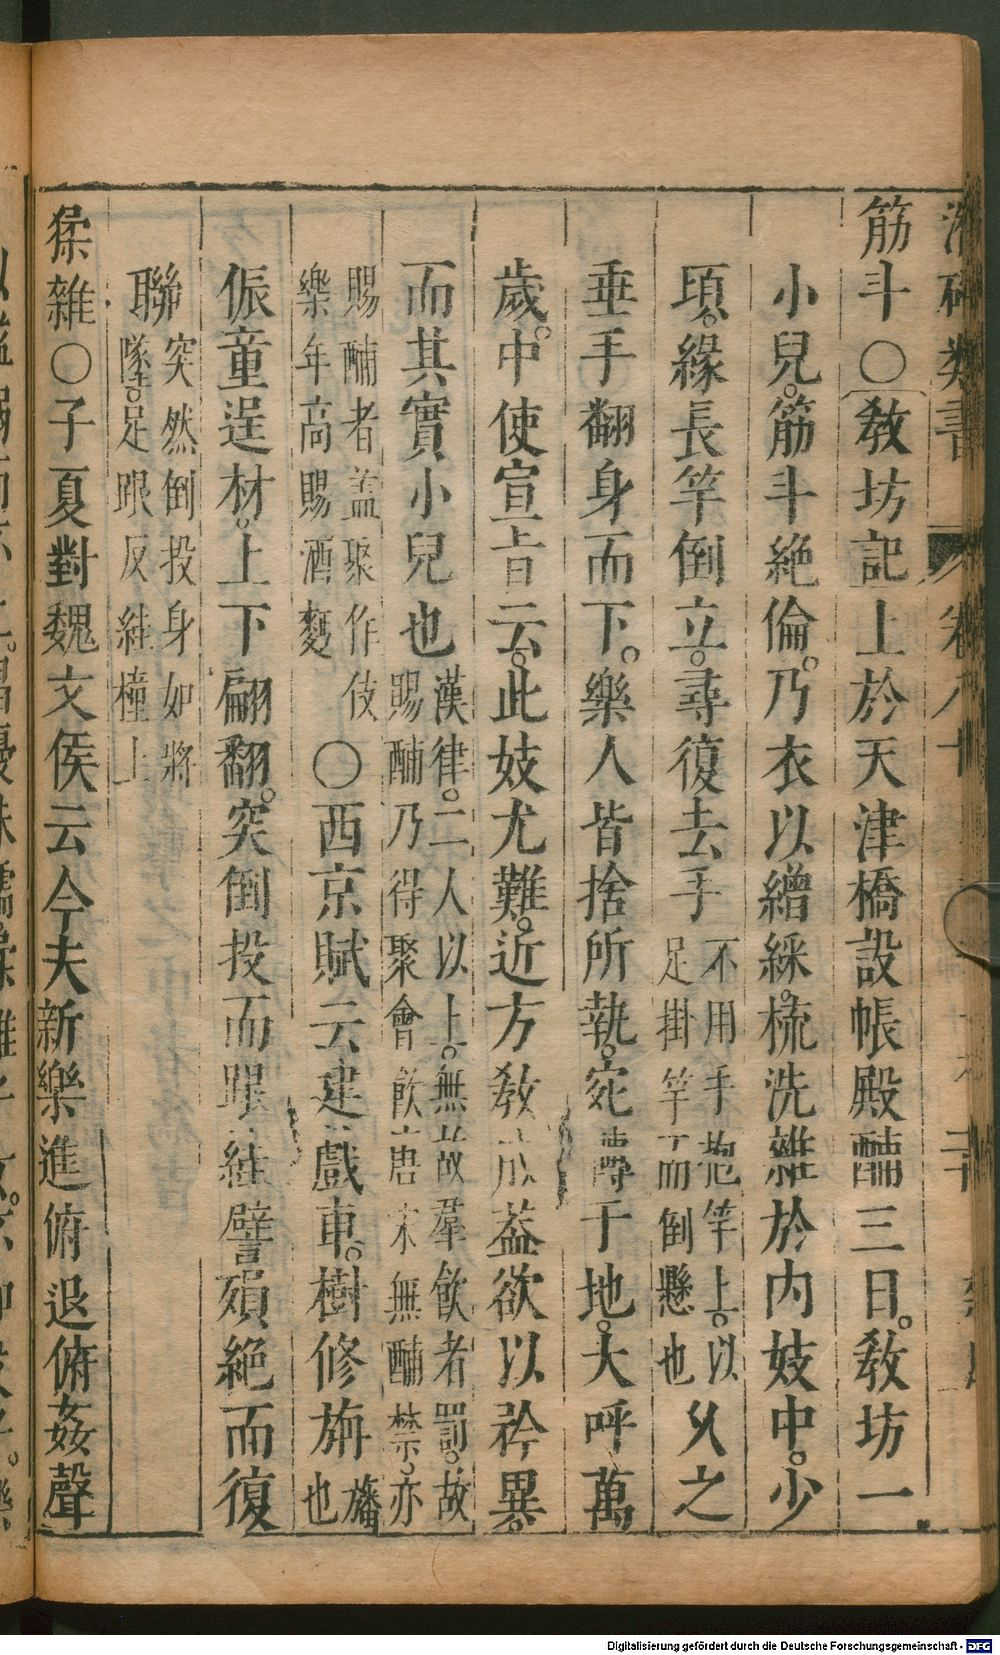 筋斗○教坊記上於天津橋設帳殿酺三日。教坊一
小兒。筋斗絶倫。乃衣以繒綵。梳洗雜於内妓中。少
頃。緣長竿倒立。尋復去手不用手抱竿上。以足掛竿而倒懸也久之
垂手翻身而下。樂人皆捨所執。宛轉于地。大呼萬
歲。中使宣㫖云。此妓尤難。近方教成葢欲以矜異。
而其實小兒也漢律。二人以上。無故羣飲者罰。故賜酺乃得聚會飲唐宋無酺禁。亦
賜酺者盖聚作伎樂年高賜酒麪○西京賦云建戲車。樹修旃旛也
侲童逞材。上下翩翻。突倒投而跟絓譬殞絶而復
聯突然倒投身如將墜。足跟反絓橦上
猱雜○子夏對魏文侯云今夫新樂進俯退俯姦聲
潛確類書
卷八十
Digitalisierung gefördert durch die Deutsche Forschungsgemeinschaft - DFG